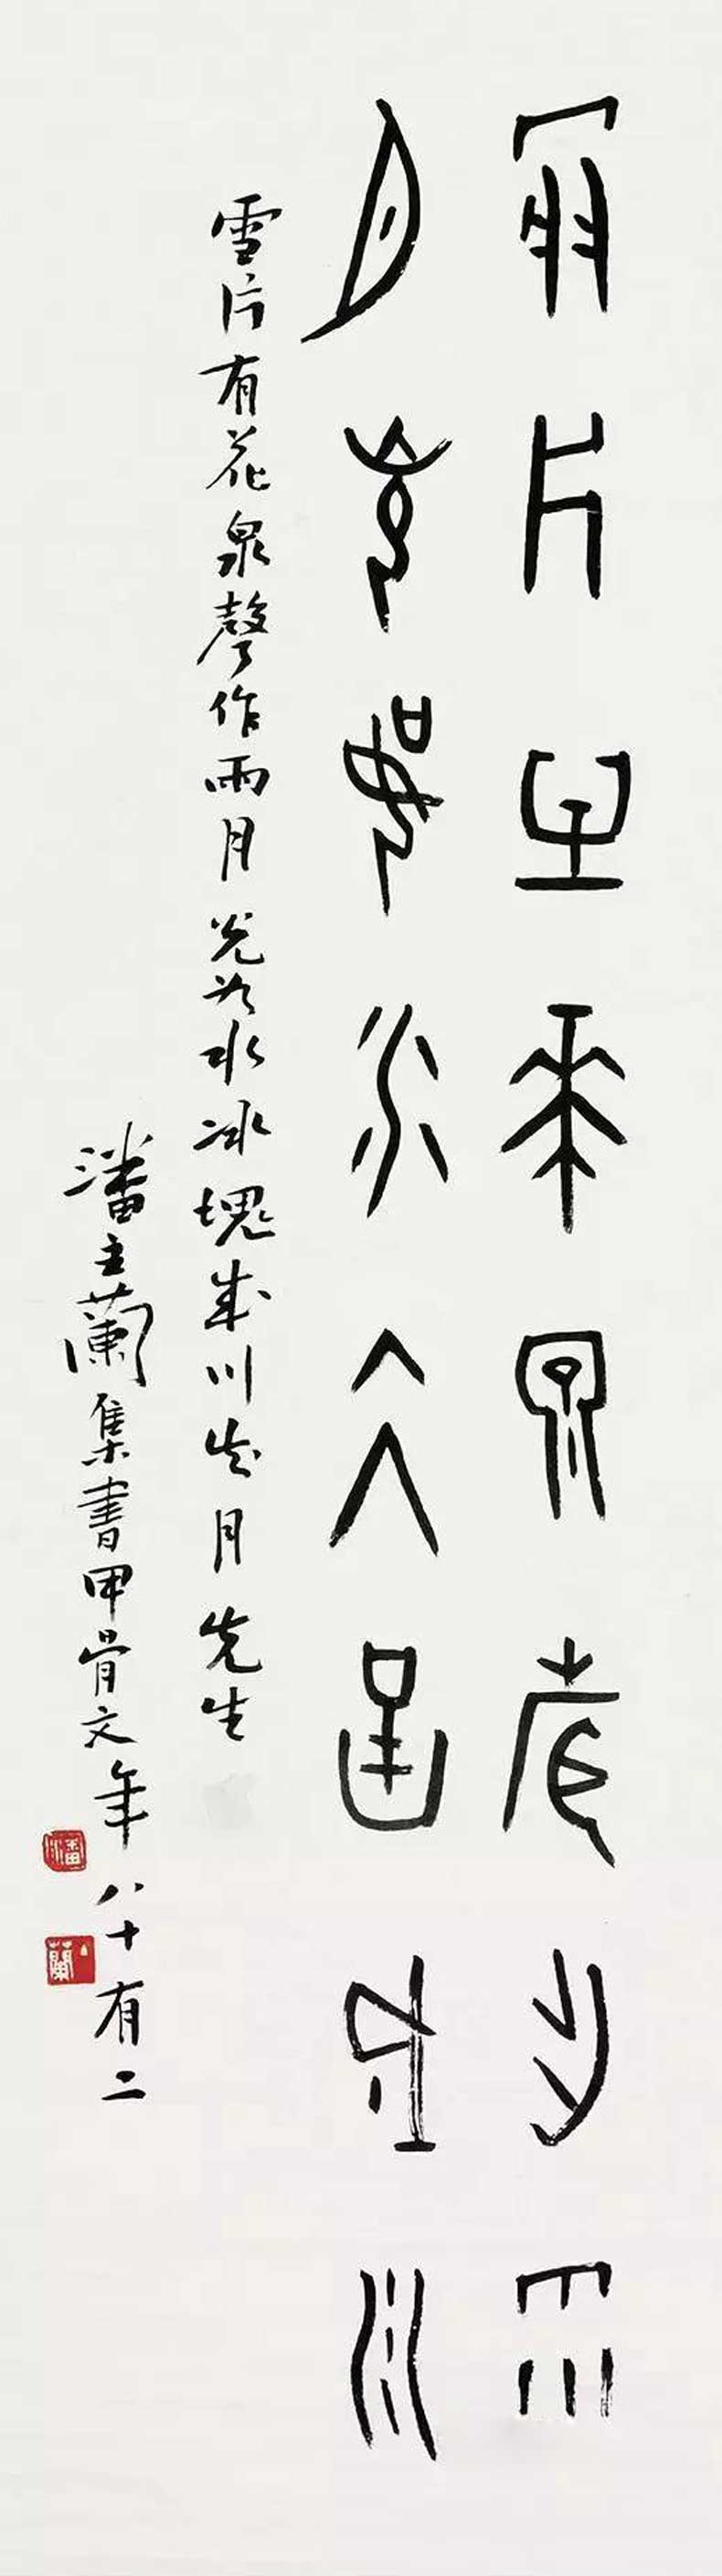 雪片有花泉聲作雨
月光為水冰塊成川
雪片有花泉聲作雨月光為水冰塊成川 月先生
潘主蘭集書甲骨文年八十有二
潘
主蘭